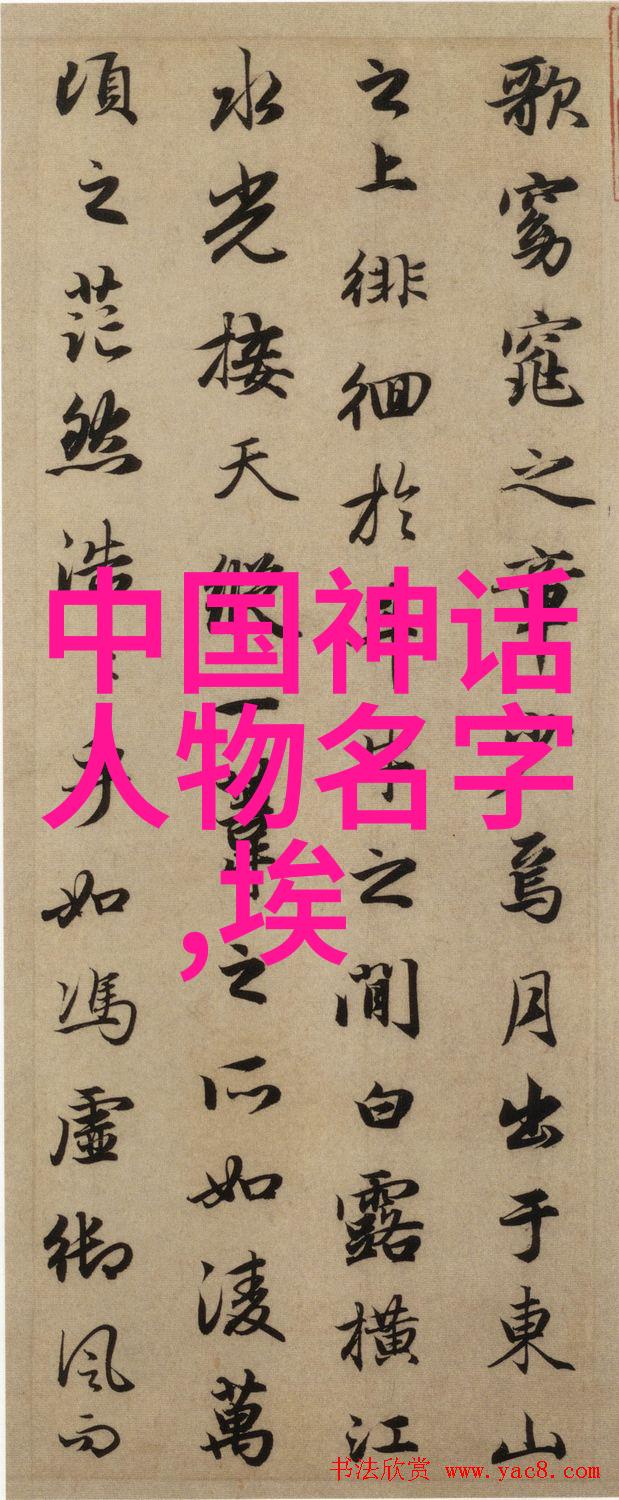 歌窈窕之章少焉月出于東山
之上徘徊於斗牛之間白露橫江
水光接天縱一葦之所如淩萬
頃之茫然浩浩乎如馮虛御風而
中国神话
人物名字
,埃
书法欣赏 www.yac8.com